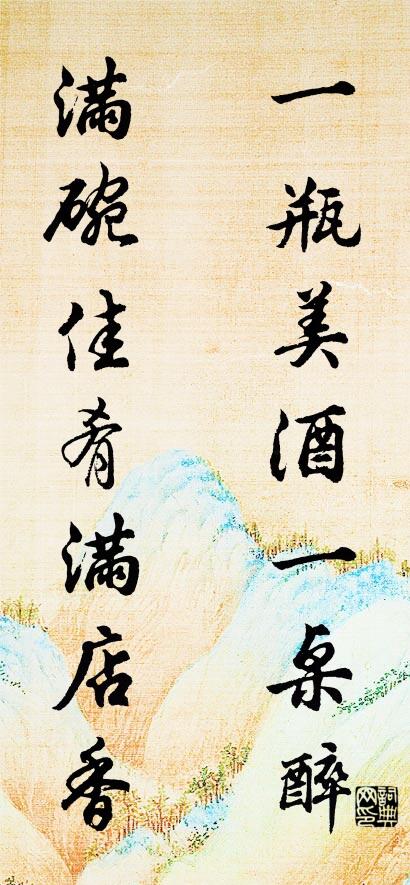 一瓶美酒一桌醉
满碗佳肴满店香
詞典网